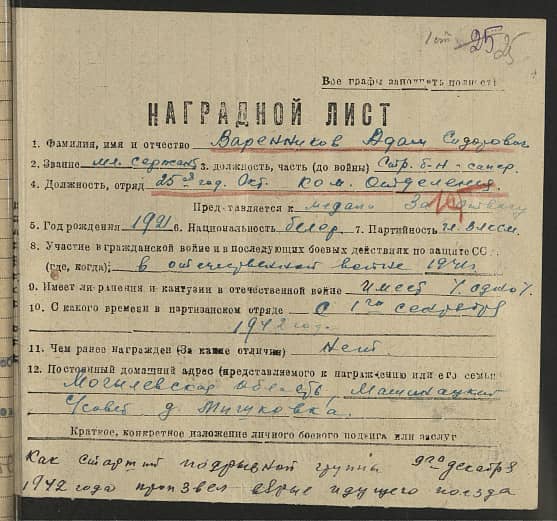 1 от 25 25
Все графы заполнять полност
НАГРАДНОЙ ЛИСТ
1. Фамилия, имя и отчество Варенников Адам Сидорович
2. Звание мл. сержант 3. должность, часть (до войны) Стр. б-н - сапер.
4. Должность, отряд 25 год. Окт. ком. отделения.
Представляется к медали За
5. Год рождения 1921 6. Национальность белор. 7. Партийность чл. ВЛКСМ.
8. Участие в гражданской войне и в последующих боевых действиях по защите СС
(где, когда) в отечественной войне 1941г
9. Имеет ли ранения и кантузии в отечественной войне имеет /одно/.
10. С какого времени в партизанском отряде с 1го сентября
1942 год.
11. Чем ранее награжден (За какие отличия) Нет.
12. Постоянный домашний адрес (представляемого к награждению или его семьи
Могилевская область
с/совет д. Мишковка.
Краткое, конкретное изложение личного боевого подвига или заслуг
Как старший подрывной группы 9го декабря
1942 года произвел взрыв идущего поезда